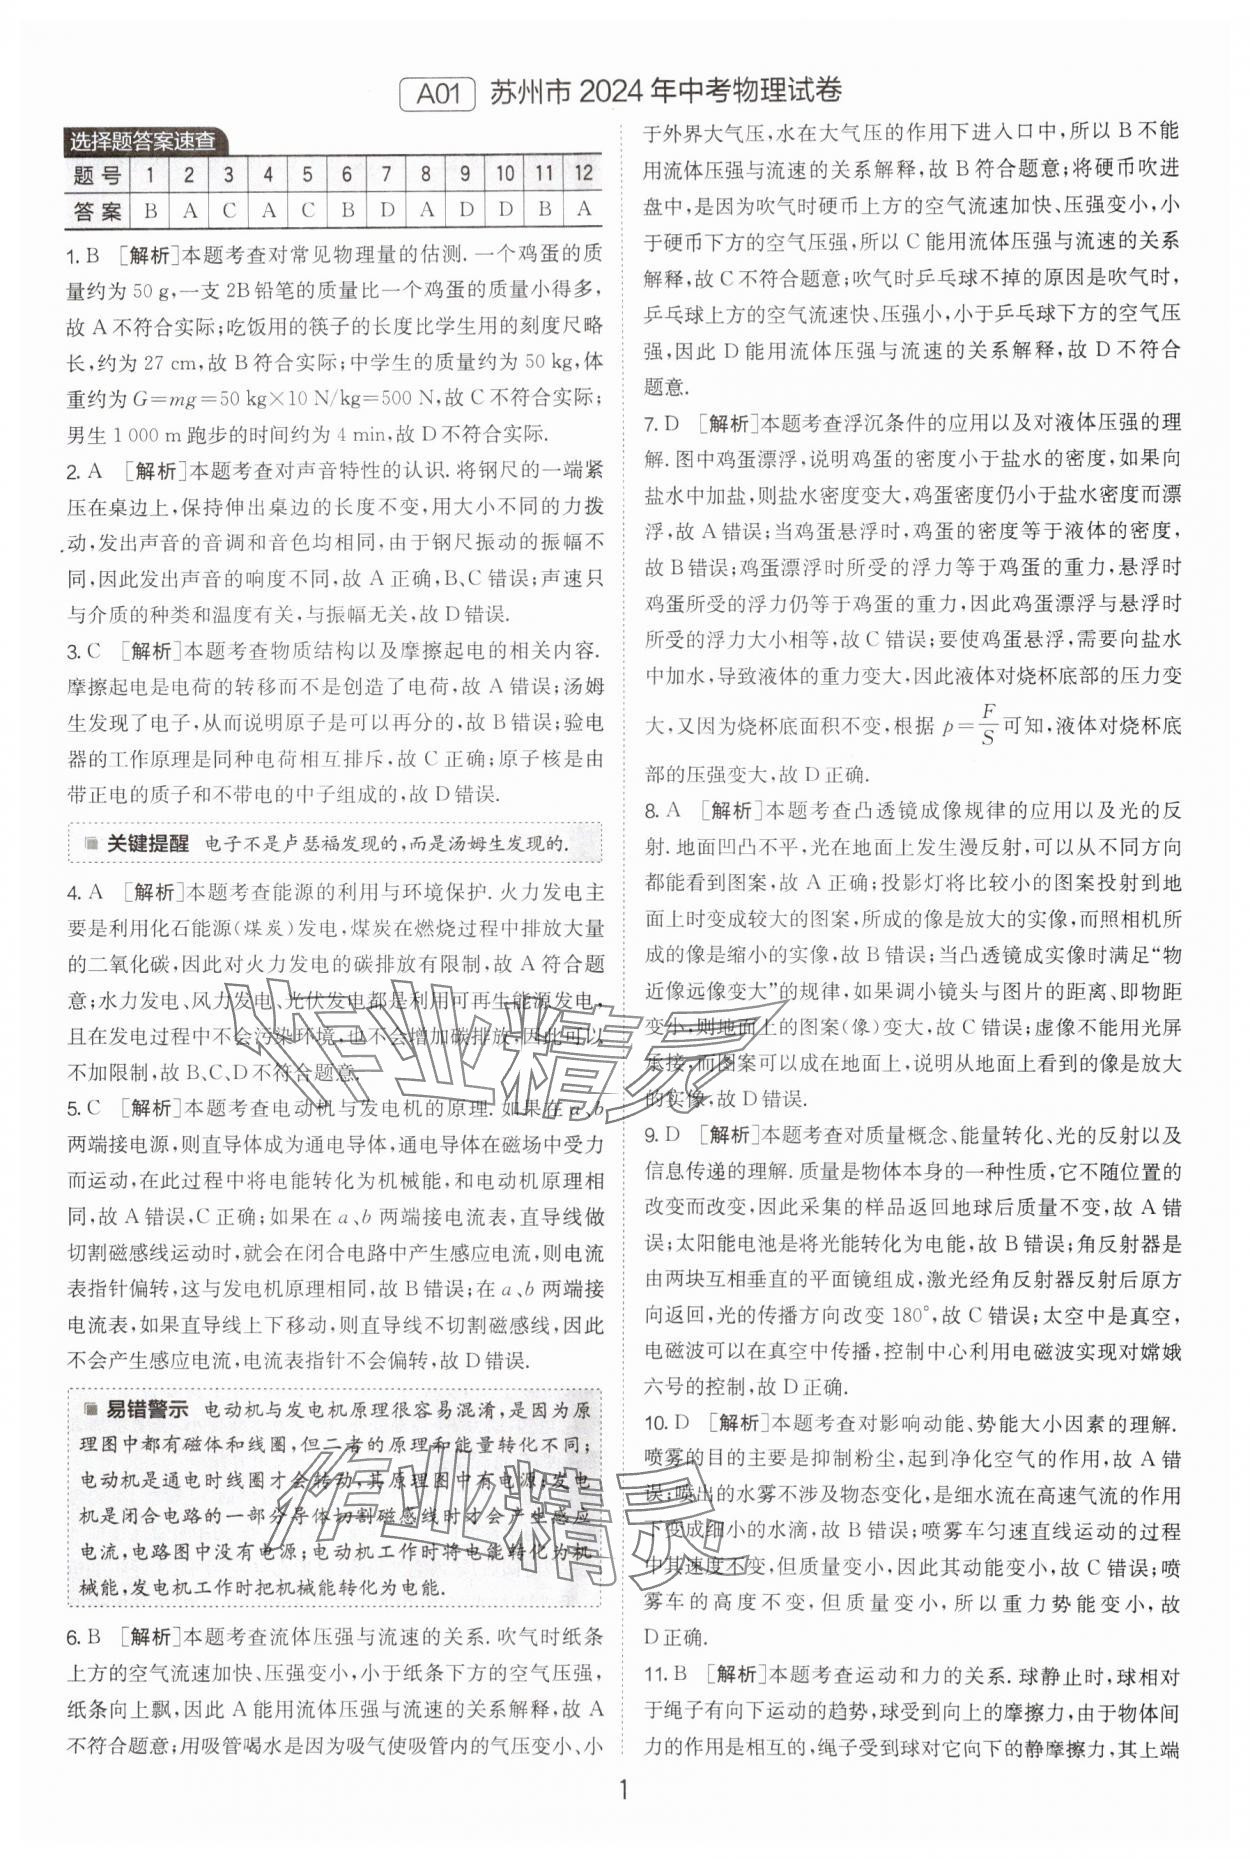 A01 苏州市 2024 年中考物理试卷
选择题答案速查
题号 1 2 3 4 5 6 7 8 9 10 11 12
答案 B A C A C B D A D D B A
1. B [解析]本题考查对常见物理量的估测. 一个鸡蛋的质
量约为 50 g,一支 2B 铅笔的质量比一个鸡蛋的质量小得多,
故 A 不符合实际;吃饭用的筷子的长度比学生用的刻度尺略
长,约为 27 cm,故 B 符合实际;中学生的质量约为 50 kg,体
重约为 G=mg=50 kg×10 N/kg=500 N,故 C 不符合实际;
男生 1 000 m 跑步的时间约为 4 min,故 D 不符合实际.
2. A [解析]本题考查对声音特性的认识. 将钢尺的一端紧
压在桌边上,保持伸出桌边的长度不变,用大小不同的力拨
动,发出声音的音调和音色均相同,由于钢尺振动的振幅不
同,因此发出声音的响度不同,故 A 正确,B、C 错误;声速只
与介质的种类和温度有关,与振幅无关,故 D 错误.
3. C [解析]本题考查物质结构以及摩擦起电的相关内容.
摩擦起电是电荷的转移而不是创造了电荷,故 A 错误;汤姆
生发现了电子,从而说明原子是可以再分的,故 B 错误;验电
器的工作原理是同种电荷相互排斥,故 C 正确;原子核是由
带正电的质子和不带电的中子组成的,故 D 错误.
关键提醒 电子不是卢瑟福发现的,而是汤姆生发现的.
4. A [解析]本题考查能源的利用与环境保护. 火力发电主
要是利用化石能源(煤炭)发电,煤炭在燃烧过程中排放大量
的二氧化碳,因此对火力发电的碳排放有限制,故 A 符合题
意;水力发电、风力发电、光伏发电都是利用可再生能源发电,
且在发电过程中不会污染环境,也不会增加碳排放,因此可以
不加限制,故 B、C、D 不符合题意.
5. C [解析]本题考查电动机与发电机的原理. 如果在 a、b
两端接电源,则直导体成为通电导体,通电导体在磁场中受力
而运动,在此过程中将电能转化为机械能,和电动机原理相
同,故 A 错误,C 正确;如果在 a、b 两端接电流表,直导线做
切割磁感线运动时,就会在闭合电路中产生感应电流,则电流
表指针偏转,这与发电机原理相同,故 B 错误;在 a、b 两端接
电流表,如果直导线上下移动,则直导线不切割磁感线,因此
不会产生感应电流,电流表指针不会偏转,故 D 错误.
易错警示 电动机与发电机原理很容易混淆,是因为原
理图中都有磁体和线圈,但二者的原理和能量转化不同;
电动机是通电时线圈才会转动,其原理图中有电源;发电
机是闭合电路的一部分导体切割磁感线时才会产生感应
电流,电路图中没有电源;电动机工作时将电能转化为机
械能,发电机工作时把机械能转化为电能.
6. B [解析]本题考查流体压强与流速的关系. 吹气时纸条
上方的空气流速加快、压强变小,小于纸条下方的空气压强,
纸条向上飘,因此 A 能用流体压强与流速的关系解释,故 A
不符合题意;用吸管喝水是因为吸气使吸管内的气压变小、小
于外界大气压,水在大气压的作用下进入口中,所以 B 不能
用流体压强与流速的关系解释,故 B 符合题意;将硬币吹进
盘中,是因为吹气时硬币上方的空气流速加快、压强变小,小
于硬币下方的空气压强,所以 C 能用流体压强与流速的关系
解释,故 C 不符合题意;吹气时乒乓球不掉的原因是吹气时,
乒乓球上方的空气流速快、压强小,小于乒乓球下方的空气压
强,因此 D 能用流体压强与流速的关系解释,故 D 不符合
题意.
7. D [解析]本题考查浮沉条件的应用以及对液体压强的理
解. 图中鸡蛋漂浮,说明鸡蛋的密度小于盐水的密度,如果向
盐水中加盐,则盐水密度变大,鸡蛋密度仍小于盐水密度而漂
浮,故 A 错误;当鸡蛋悬浮时,鸡蛋的密度等于液体的密度,
故 B 错误;鸡蛋漂浮时所受的浮力等于鸡蛋的重力,悬浮时
鸡蛋所受的浮力仍等于鸡蛋的重力,因此鸡蛋漂浮与悬浮时
所受的浮力大小相等,故 C 错误;要使鸡蛋悬浮,需要向盐水
中加水,导致液体的重力变大,因此液体对烧杯底部的压力变
大,又因为烧杯底面积不变,根据 p=F/S 可知,液体对烧杯底
部的压强变大,故 D 正确.
8. A [解析]本题考查凸透镜成像规律的应用以及光的反
射. 地面凹凸不平,光在地面上发生漫反射,可以从不同方向
都能看到图案,故 A 正确;投影灯将比较小的图案投射到地
面上时变成较大的图案,所成的像是放大的实像,而照相机所
成的像是缩小的实像,故 B 错误;当凸透镜成实像时满足“物
近像远像变大”的规律,如果调小镜头与图片的距离、即物距
变小,则地面上的图案(像)变大,故 C 错误;虚像不能用光屏
承接,而图案可以成在地面上,说明从地面上看到的像是放大
的实像,故 D 错误.
9. D [解析]本题考查对质量概念、能量转化、光的反射以及
信息传递的理解. 质量是物体本身的一种性质,它不随位置的
改变而改变,因此采集的样品返回地球后质量不变,故 A 错
误;太阳能电池是将光能转化为电能,故 B 错误;角反射器是
由两块互相垂直的平面镜组成,激光经角反射器反射后原方
向返回,光的传播方向改变 180°,故 C 错误;太空中是真空,
电磁波可以在真空中传播,控制中心利用电磁波实现对嫦娥
六号的控制,故 D 正确.
10. D [解析]本题考查对影响动能、势能大小因素的理解.
喷雾的目的主要是抑制粉尘,起到净化空气的作用,故 A 错
误;喷出的水雾不涉及物态变化,是细水流在高速气流的作用
下变成细小的水滴,故 B 错误;喷雾车匀速直线运动的过程
中其速度不变,但质量变小,因此其动能变小,故 C 错误;喷
雾车的高度不变,但质量变小,所以重力势能变小,故
D 正确.
11. B [解析]本题考查运动和力的关系. 球静止时,球相对
于绳子有向下运动的趋势,球受到向上的摩擦力,由于物体间
力的作用是相互的,绳子受到球对它向下的静摩擦力,其上端
1
作业精灵
作业精灵